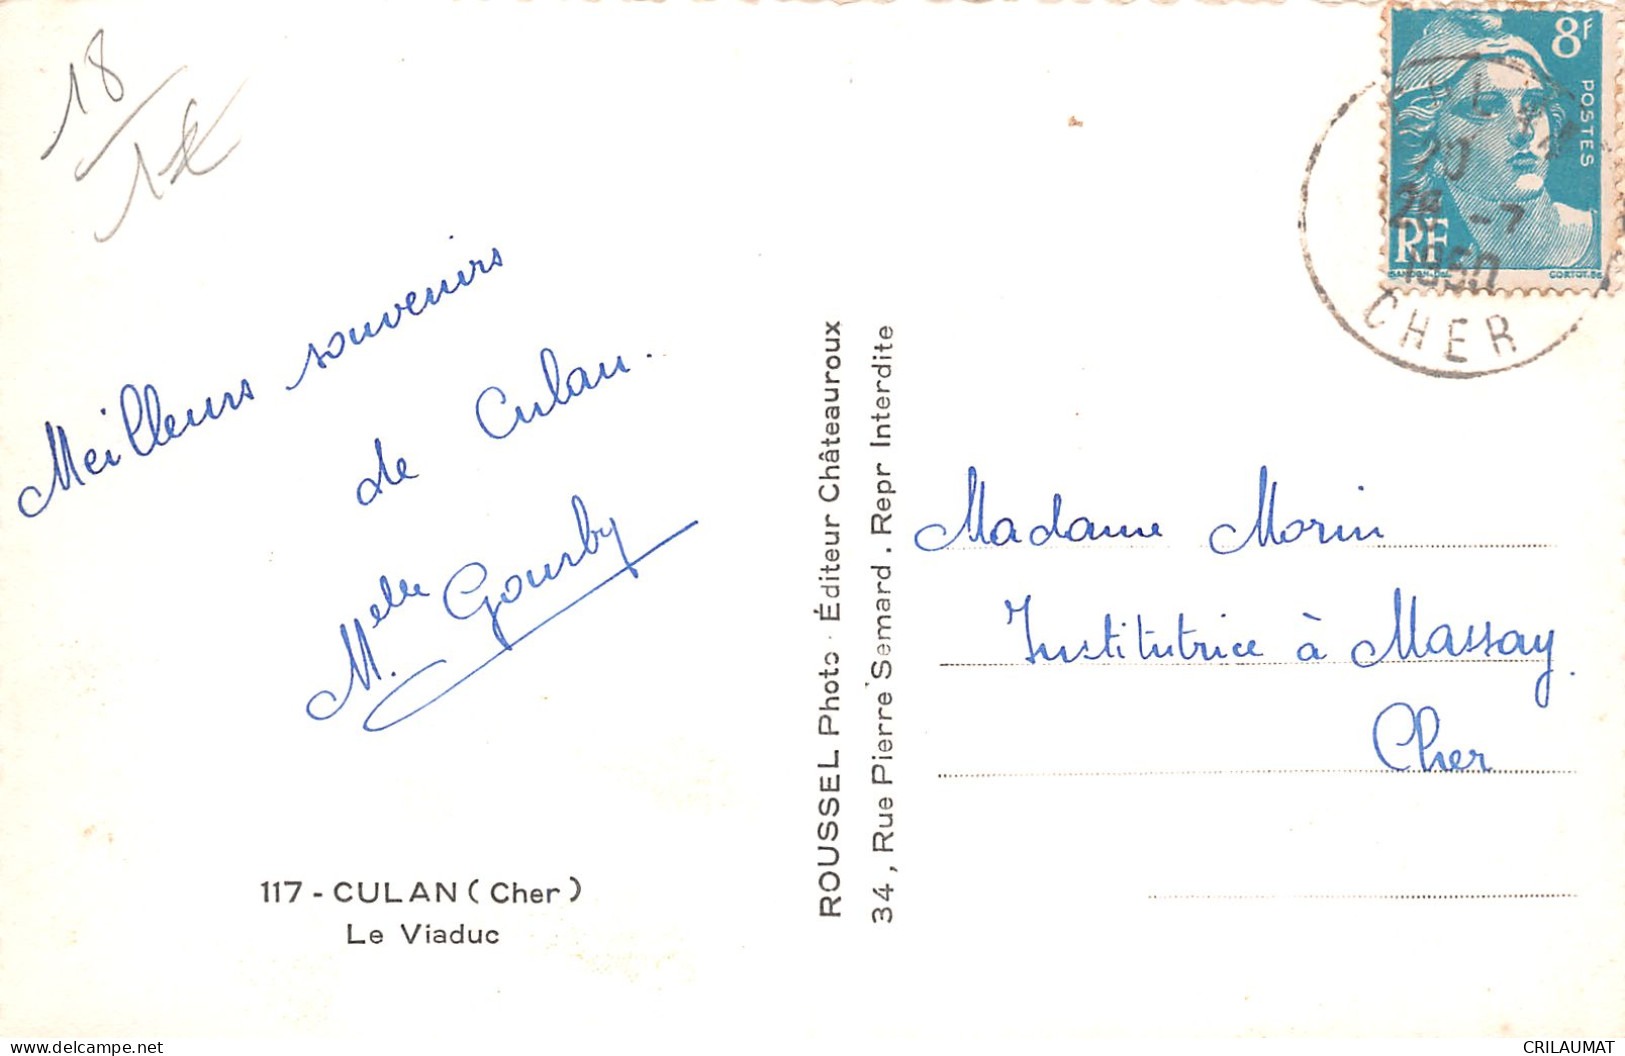 18
1€
Meilleurs souvenirs
de Culan.
Melle Gourby
117 - CULAN ( Cher )
Le Viaduc
ROUSSEL Photo · Éditeur Châteauroux
34, Rue Pierre Semard . Repr Interdite
8F
POSTES
RF
GANDON-DEL.
CORTOT-SC
20
26 -7
1950
CHER
Madame Morin
Institutrice à Massay.
Cher
www.delcampe.net
CRILAUMAT